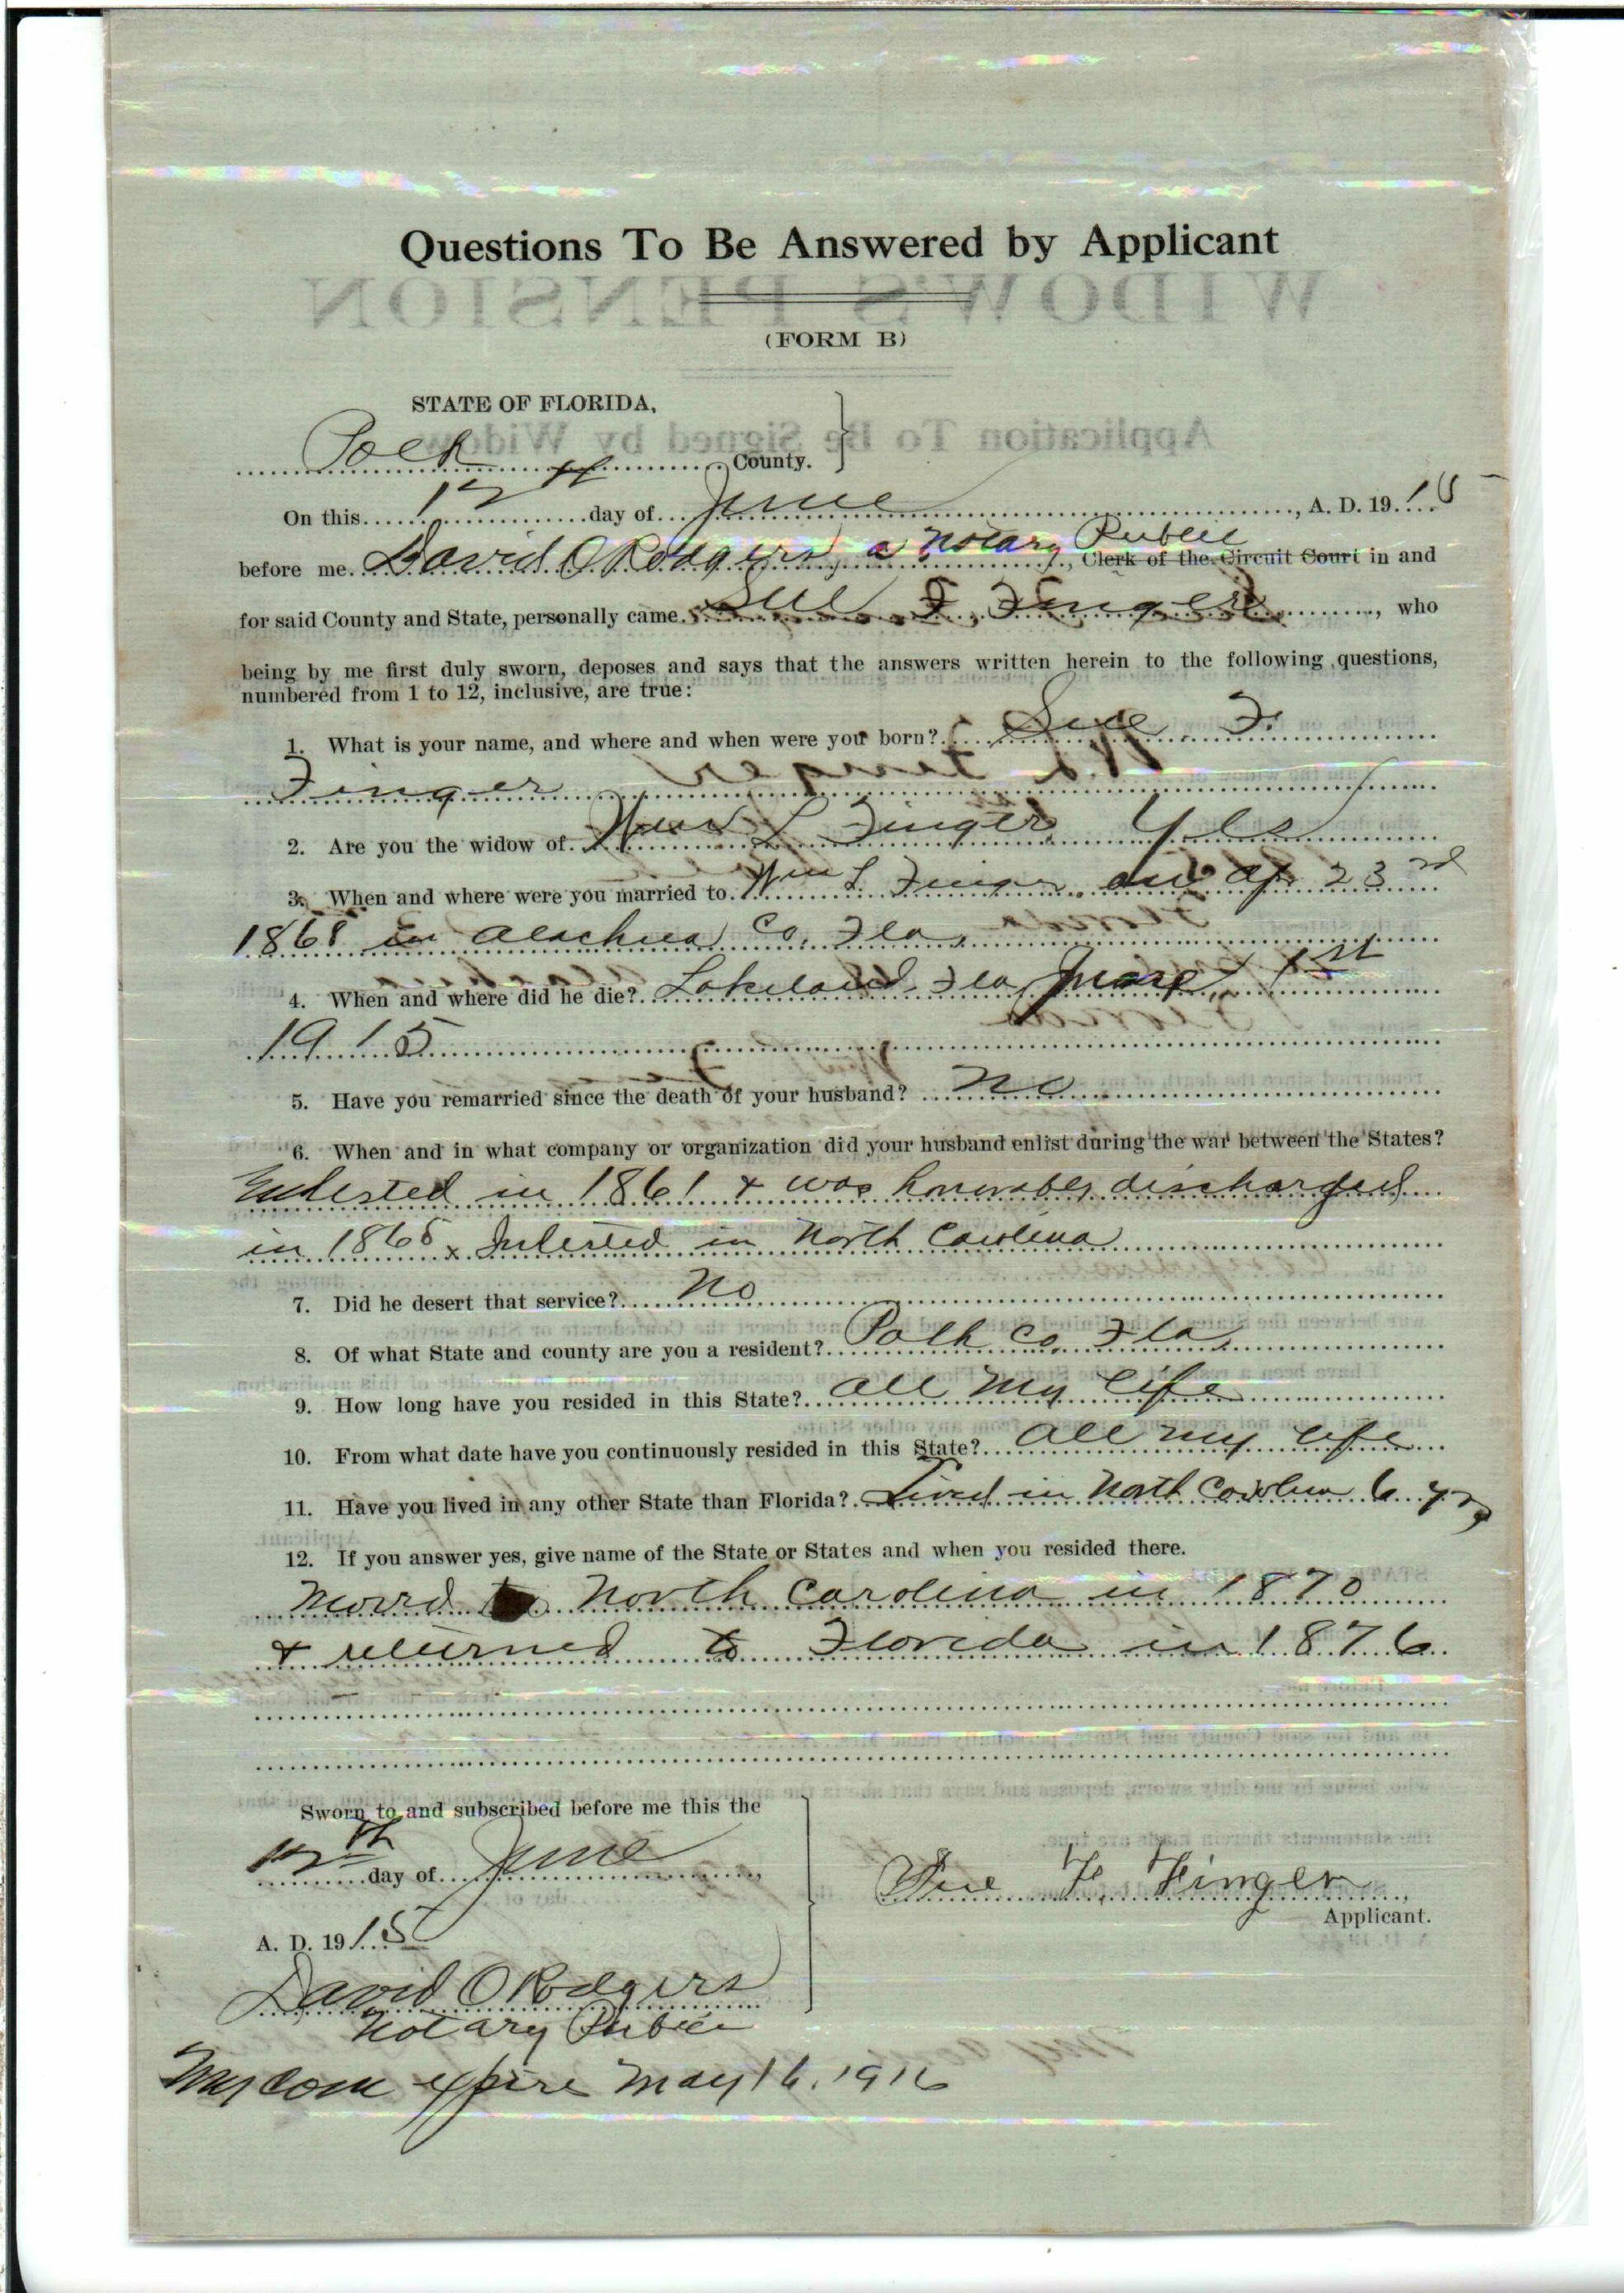 Questions To Be Answered by Applicant
WIDOW'S PENSION
(FORM B)
STATE OF FLORIDA,
Application To Be Signed by Widow
Polk County.
On this 12th day of June, A. D. 1915
before me David O Rodgers, a Notary Public, Clerk of the Circuit Court in and
for said County and State, personally came Sue F. Finger, who
being by me first duly sworn, deposes and says that the answers written herein to the following questions,
numbered from 1 to 12, inclusive, are true:
1. What is your name, and where and when were you born? Sue F.
Finger
2. Are you the widow of Wm L Finger Yes
3. When and where were you married to Wm L. Finger on Ap 23rd
1868 in Alachua Co, Fla,
4. When and where did he die? Lakeland, Fla, 1st
1915
5. Have you remarried since the death of your husband? No
6. When and in what company or organization did your husband enlist during the war between the States?
Enlested in 1861 & was discharged
in 1865 x Inlisted in North Carolina
7. Did he desert that service? No
8. Of what State and county are you a resident? Polk Co, Fla,
9. How long have you resided in this State? All my life
10. From what date have you continuously resided in this State? All my life
11. Have you lived in any other State than Florida? Lived in North Carolina 6 yrs
12. If you answer yes, give name of the State or States and when you resided there.
Moved to North Carolina in 1870
& returned to Florida in 1876
Sworn to and subscribed before me this the
12th day of June,
Sue F. Finger,
Applicant.
A. D. 1915
David O Rodgers
Notary Public
My com expire May 16, 1916